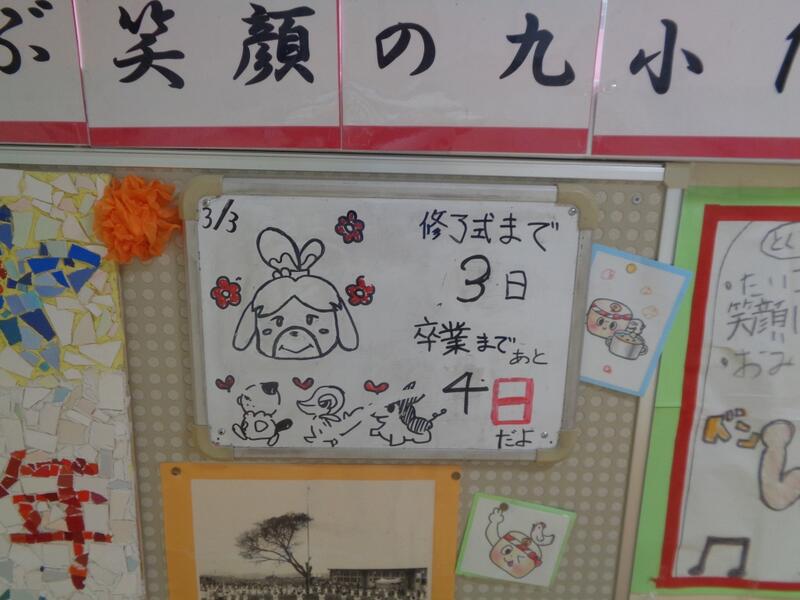 ぶ笑顔の九小
3/3
修了式まで
3日
卒業まであと
4日
だよ
とく
・たい
笑顔い
・おみ
ズン
年